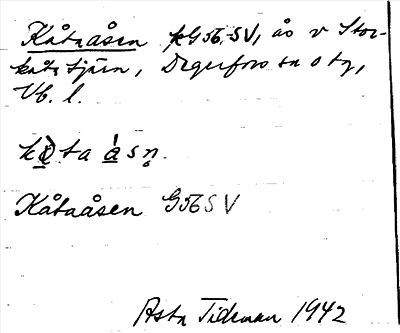 Kåtaåsen kG56, SV, ås v Stor-
kåtatjärn, Degerfors sn o tg,
Vb. l.
kåta åsn.
Kåtaåsen G56SV
Asta Tideman 1942